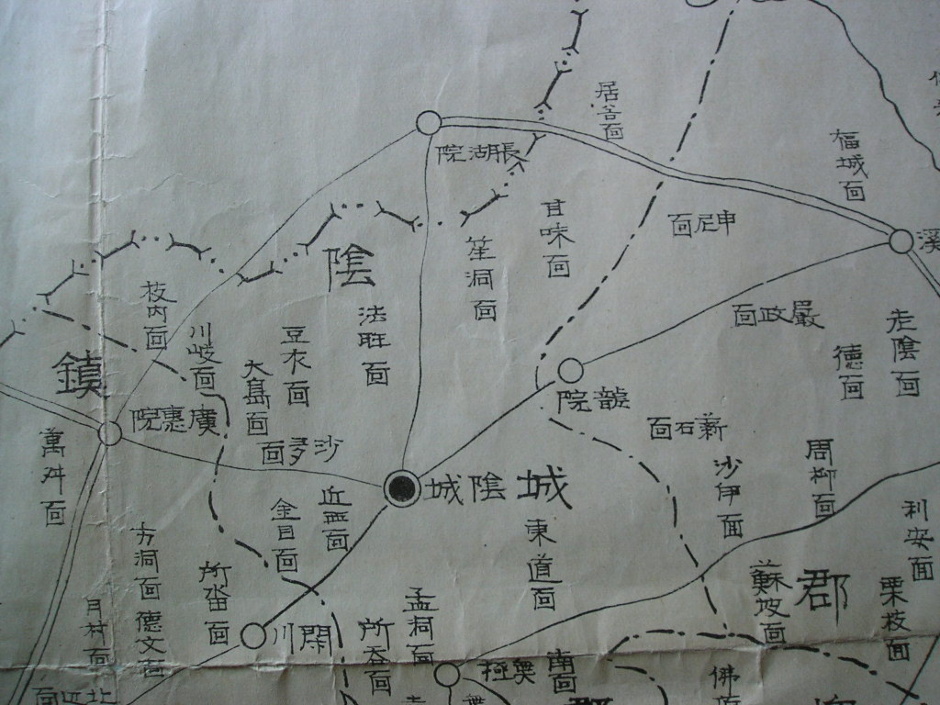 居谷面
長湖院
福城面
甘味面
申尼面
笙洞面
陰
枝內面
川岐面
法旺面
豆衣面
大鳥面
嚴政面
老隱面
德面
鎭
廣惠院
龍院
薪石面
沙多面
萬升面
城陰城
周柳面
沙伊面
近西面
金目面
東道面
利安面
方洞面
德文面
所沓面
月村面
閑川
孟洞面
所呑面
蘇坡面
郡
栗枝面
南面
佛
北邊面